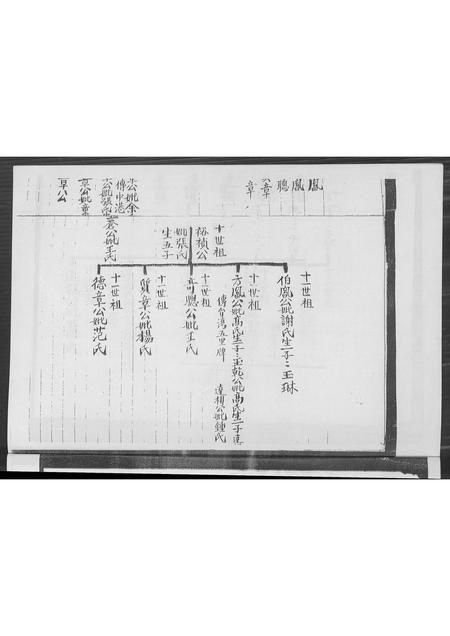 鳳
鳳
聰
章
章
公妣余
傳中港
公妣張氏
養公妣王氏
章公妣童
章公
十世祖
裕積公
妣張氏
生五子
十一世祖
伯鳳公妣謝氏生一子：玉琳
十一世祖
方鳳公妣高氏生一子：玉乾公妣高氏生一子
傳台湾五里牌 達 公妣鍾氏
十一世祖
奇聰公妣王氏
十一世祖
賢章公妣楊氏
十一世祖
德章公妣范氏